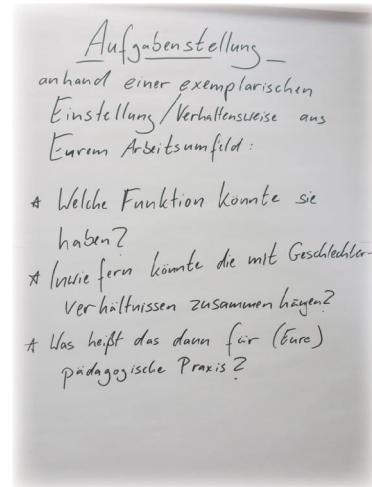 Aufgabenstellung
anhand einer exemplarischen
Einstellung/Verhaltensweise aus
Eurem Arbeitsumfeld:
* Welche Funktion könnte sie
haben?
* Inwiefern könnte die mit Geschlechter-
verhältnissen zusammenhängen?
* Was heißt das dann für (Eure)
pädagogische Praxis?